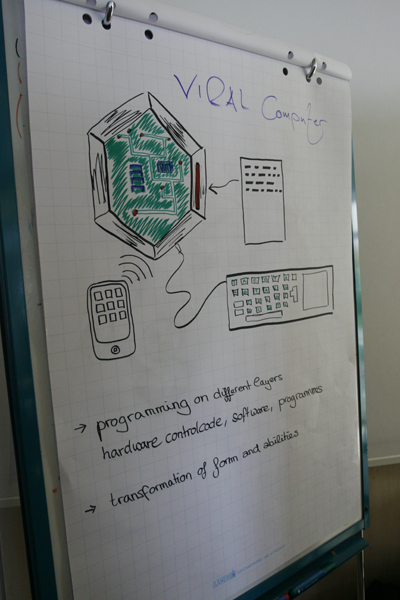 VIRAL Computer
→ programming on different layers
hardware controlcode, software, programms
→ transformation of form and abilities